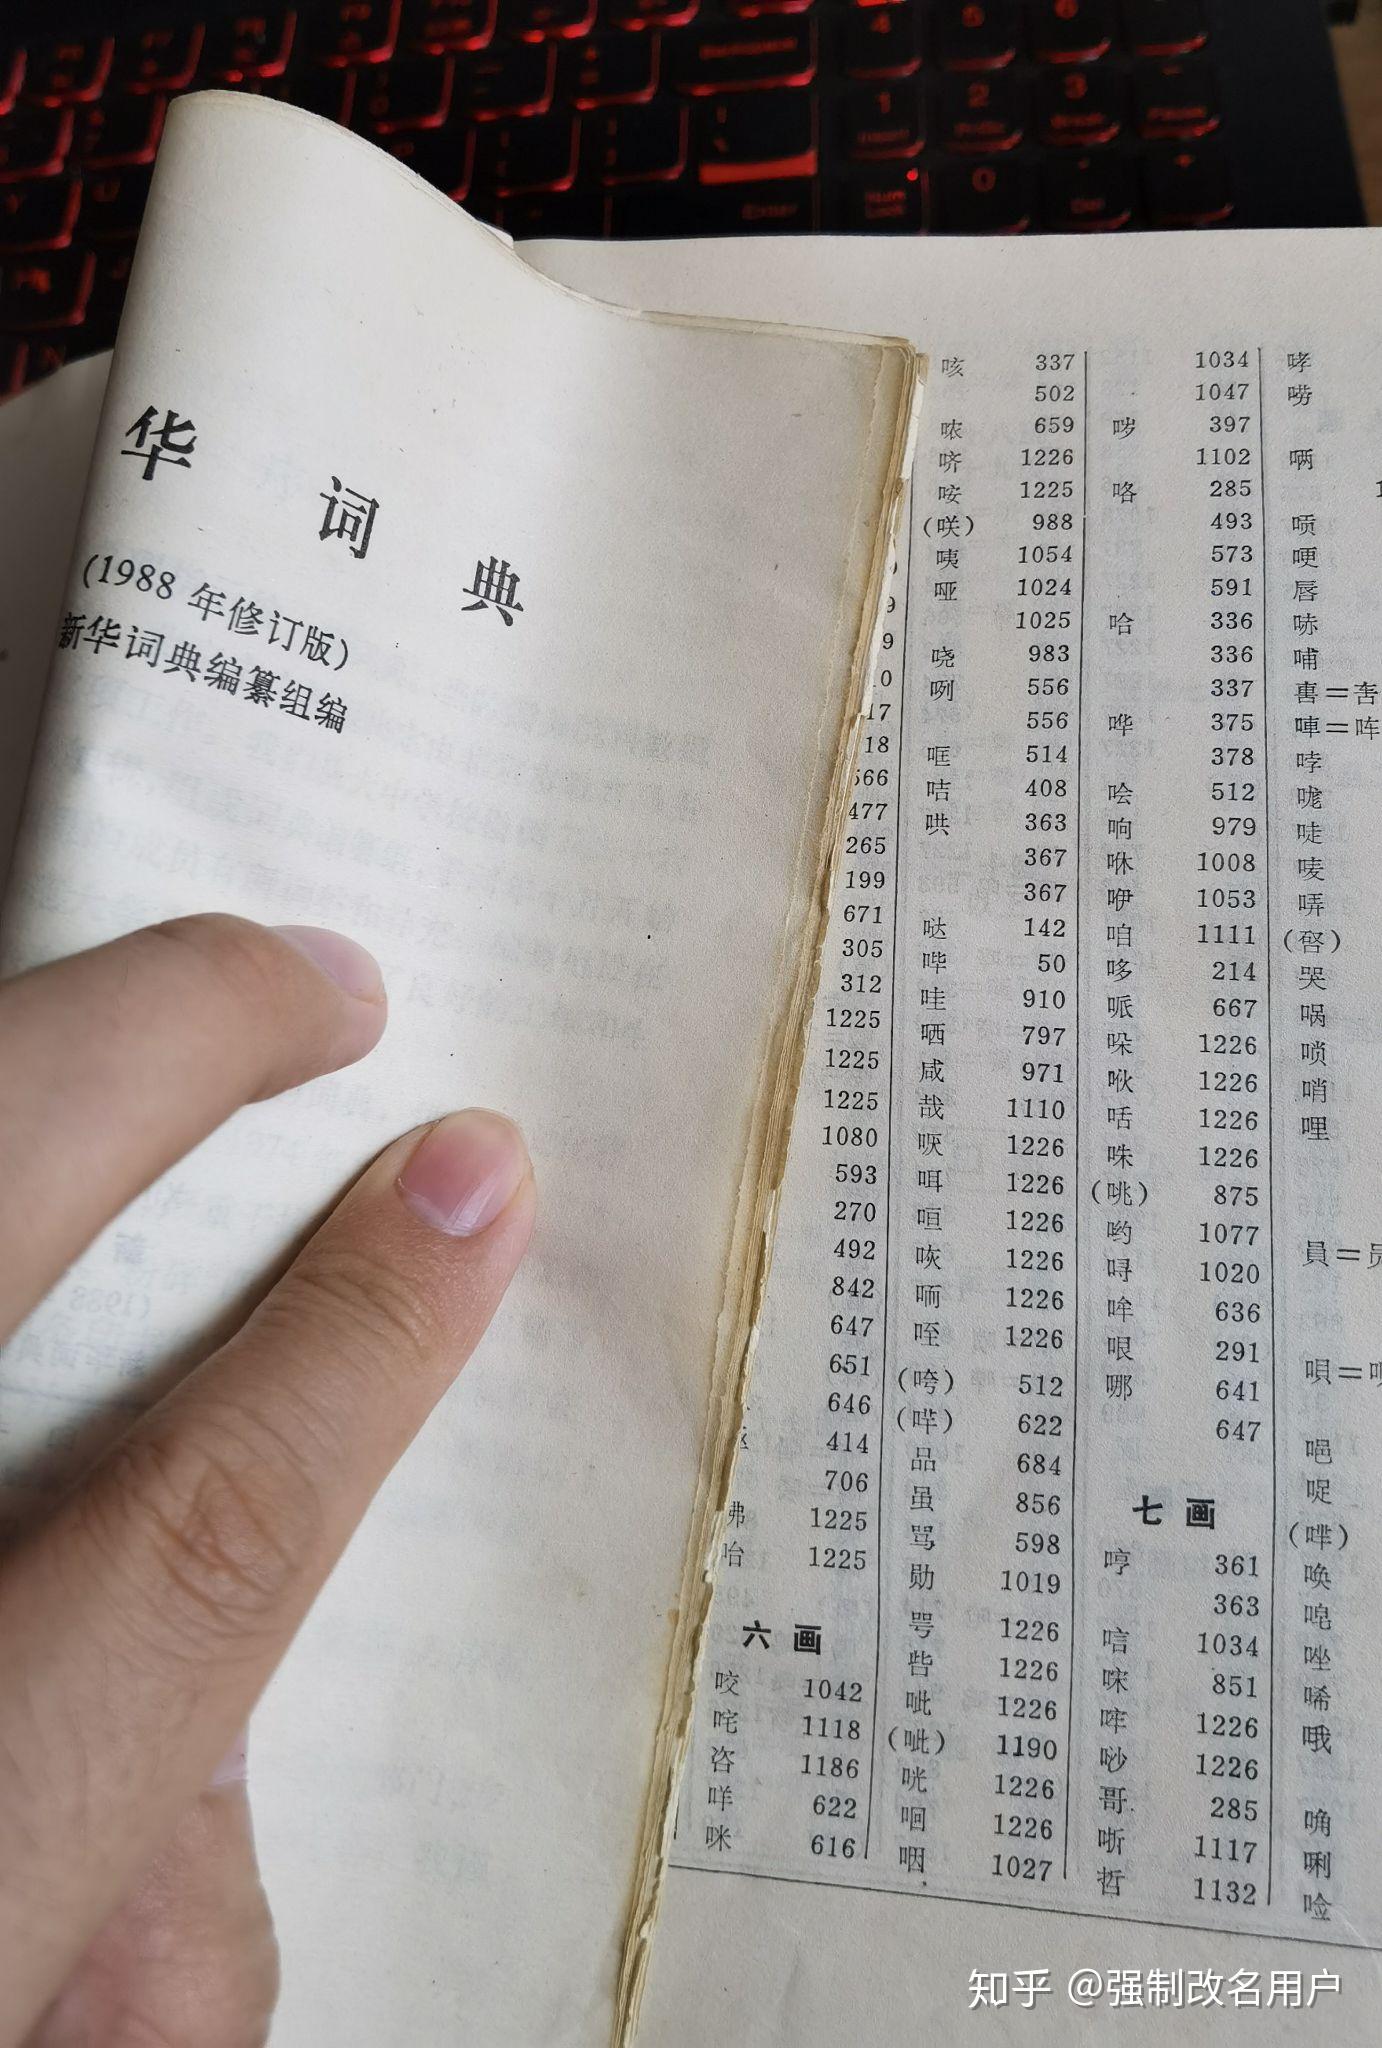 华 词 典
(1988 年修订版)
新华词典编纂组编
17
18
566
477
265
199
671
305
312
1225
1225
1225
1080
593
270
492
842
647
651
646
414
706
1225
咍 1225
六 画
咬 1042
咤 1118
咨 1186
咩 622
咪 616
咳 337
502
哝 659
哜 1226
咹 1225
(咲) 988
咦 1054
哑 1024
1025
哓 983
咧 556
556
哐 514
咭 408
哄 363
367
367
哒 142
哔 50
哇 910
哂 797
咸 971
哉 1110
咴 1226
咡 1226
咺 1226
1226
1226
咥 1226
(咵) 512
(哶) 622
品 684
虽 856
骂 598
勋 1019
咢 1226
呰 1226
呲 1226
(呲) 1190
咣 1226
咽 1027
1034
1047
哕 397
1102
咯 285
493
573
591
哈 336
336
337
哗 375
378
哙 512
响 979
咻 1008
咿 1053
咱 1111
哆 214
哌 667
哚 1226
咶 1226
咮 1226
(咷) 875
哟 1077
哷 1020
哞 636
哏 291
哪 641
647
七 画
哼 361
363
唁 1034
1226
唦 1226
哥 285
哳 1117
哲 1132
哮
唠
唝
哽
唇
哧
哺
哱
唛
哢
哭
㖞
唢
哨
哩
員=员
唄=
唈
唤
唣
唑
唏
哦
唃
唎
唫
知乎 @强制改名用户